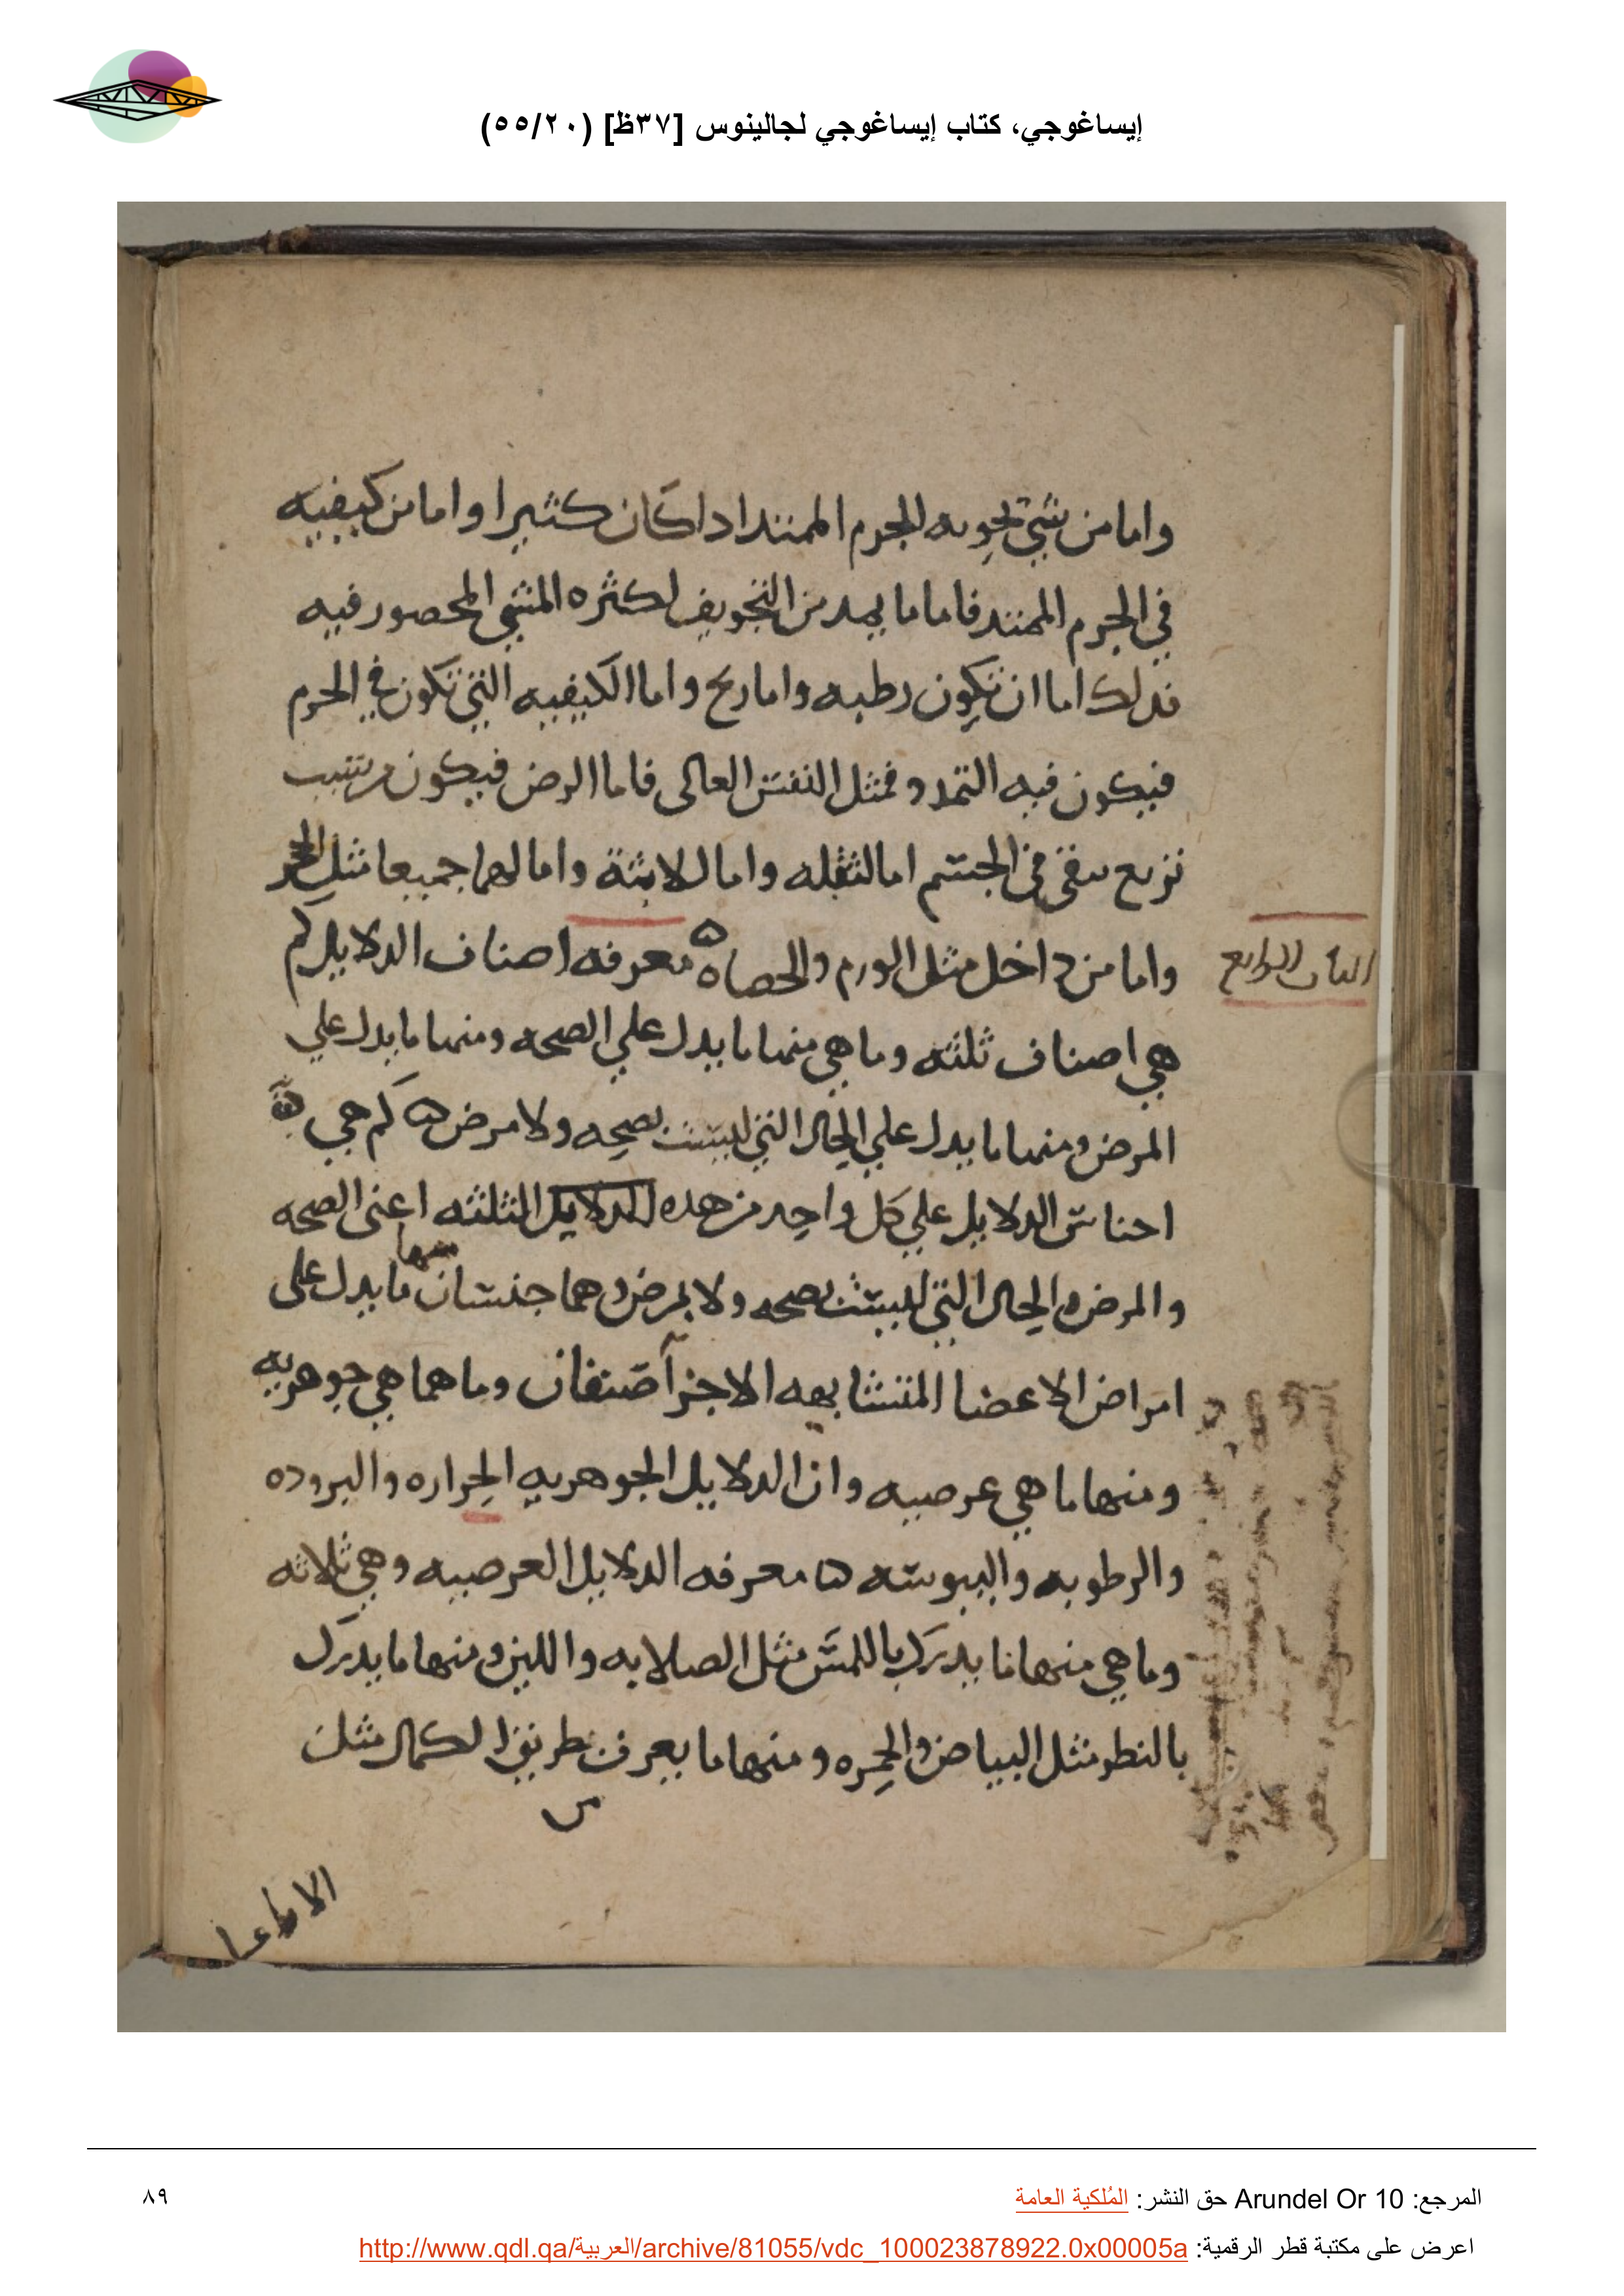 إيساغوجي، كتاب إيساغوجي لجالينوس [٣٧ظ] (٥٥/٢٠)
واما من شي تحويه الجرم الممتد ادا كان كثيرا واما من كيفيه
في الجرم الممتد فاما ما يمد من التجويف لكثره الشي المحصور فيه
فدلك اما ان تكون رطبه واما ريح واما الكيفيه التي تكون في الجرم
فيكون فيه التمدد فمثل العالى فاما الرض فيكون من
في الجسم اما لثقله واما واما لهما جميعا مثل الحجر
واما من داخل مثل الورم والحصاه ه معرفه اصناف الدلايل كم
الباب الرابع
هي اصناف ثلثه وما هي منها ما يدل علي الصحه ومنها ما يدل علي
المرض ومنها ما يدل علي الحال التي ليست بصحه ولا مرض ه كم هي
احناس الدلايل علي كل واحد من هده الدلايل الثلثه اعنى الصحه
والمرض والحال التي ليست بصحه ولا بمرض وهما جنسان منها ما يدل على
امراض الاعضا المتشابهه الاجزآ صنفان وما هما هي جوهريه
ومنها ما هي عرصيه وان الدلايل الجوهريه الحراره والبروده
والرطوبه واليبوسه ه معرفه الدلايل العرصيه وهي ثلاثه
وما هي منها ما يدرك باللمس مثل الصلابه واللين ومنها ما يدرك
بالنطر مثل البياض والحمره ومنها ما يعرف من طريق الكمال مثل
المرجع: Arundel Or 10 حق النشر: المُلكية العامة
٨٩
اعرض على مكتبة قطر الرقمية: http://www.qdl.qa/العربية/archive/81055/vdc_100023878922.0x00005a